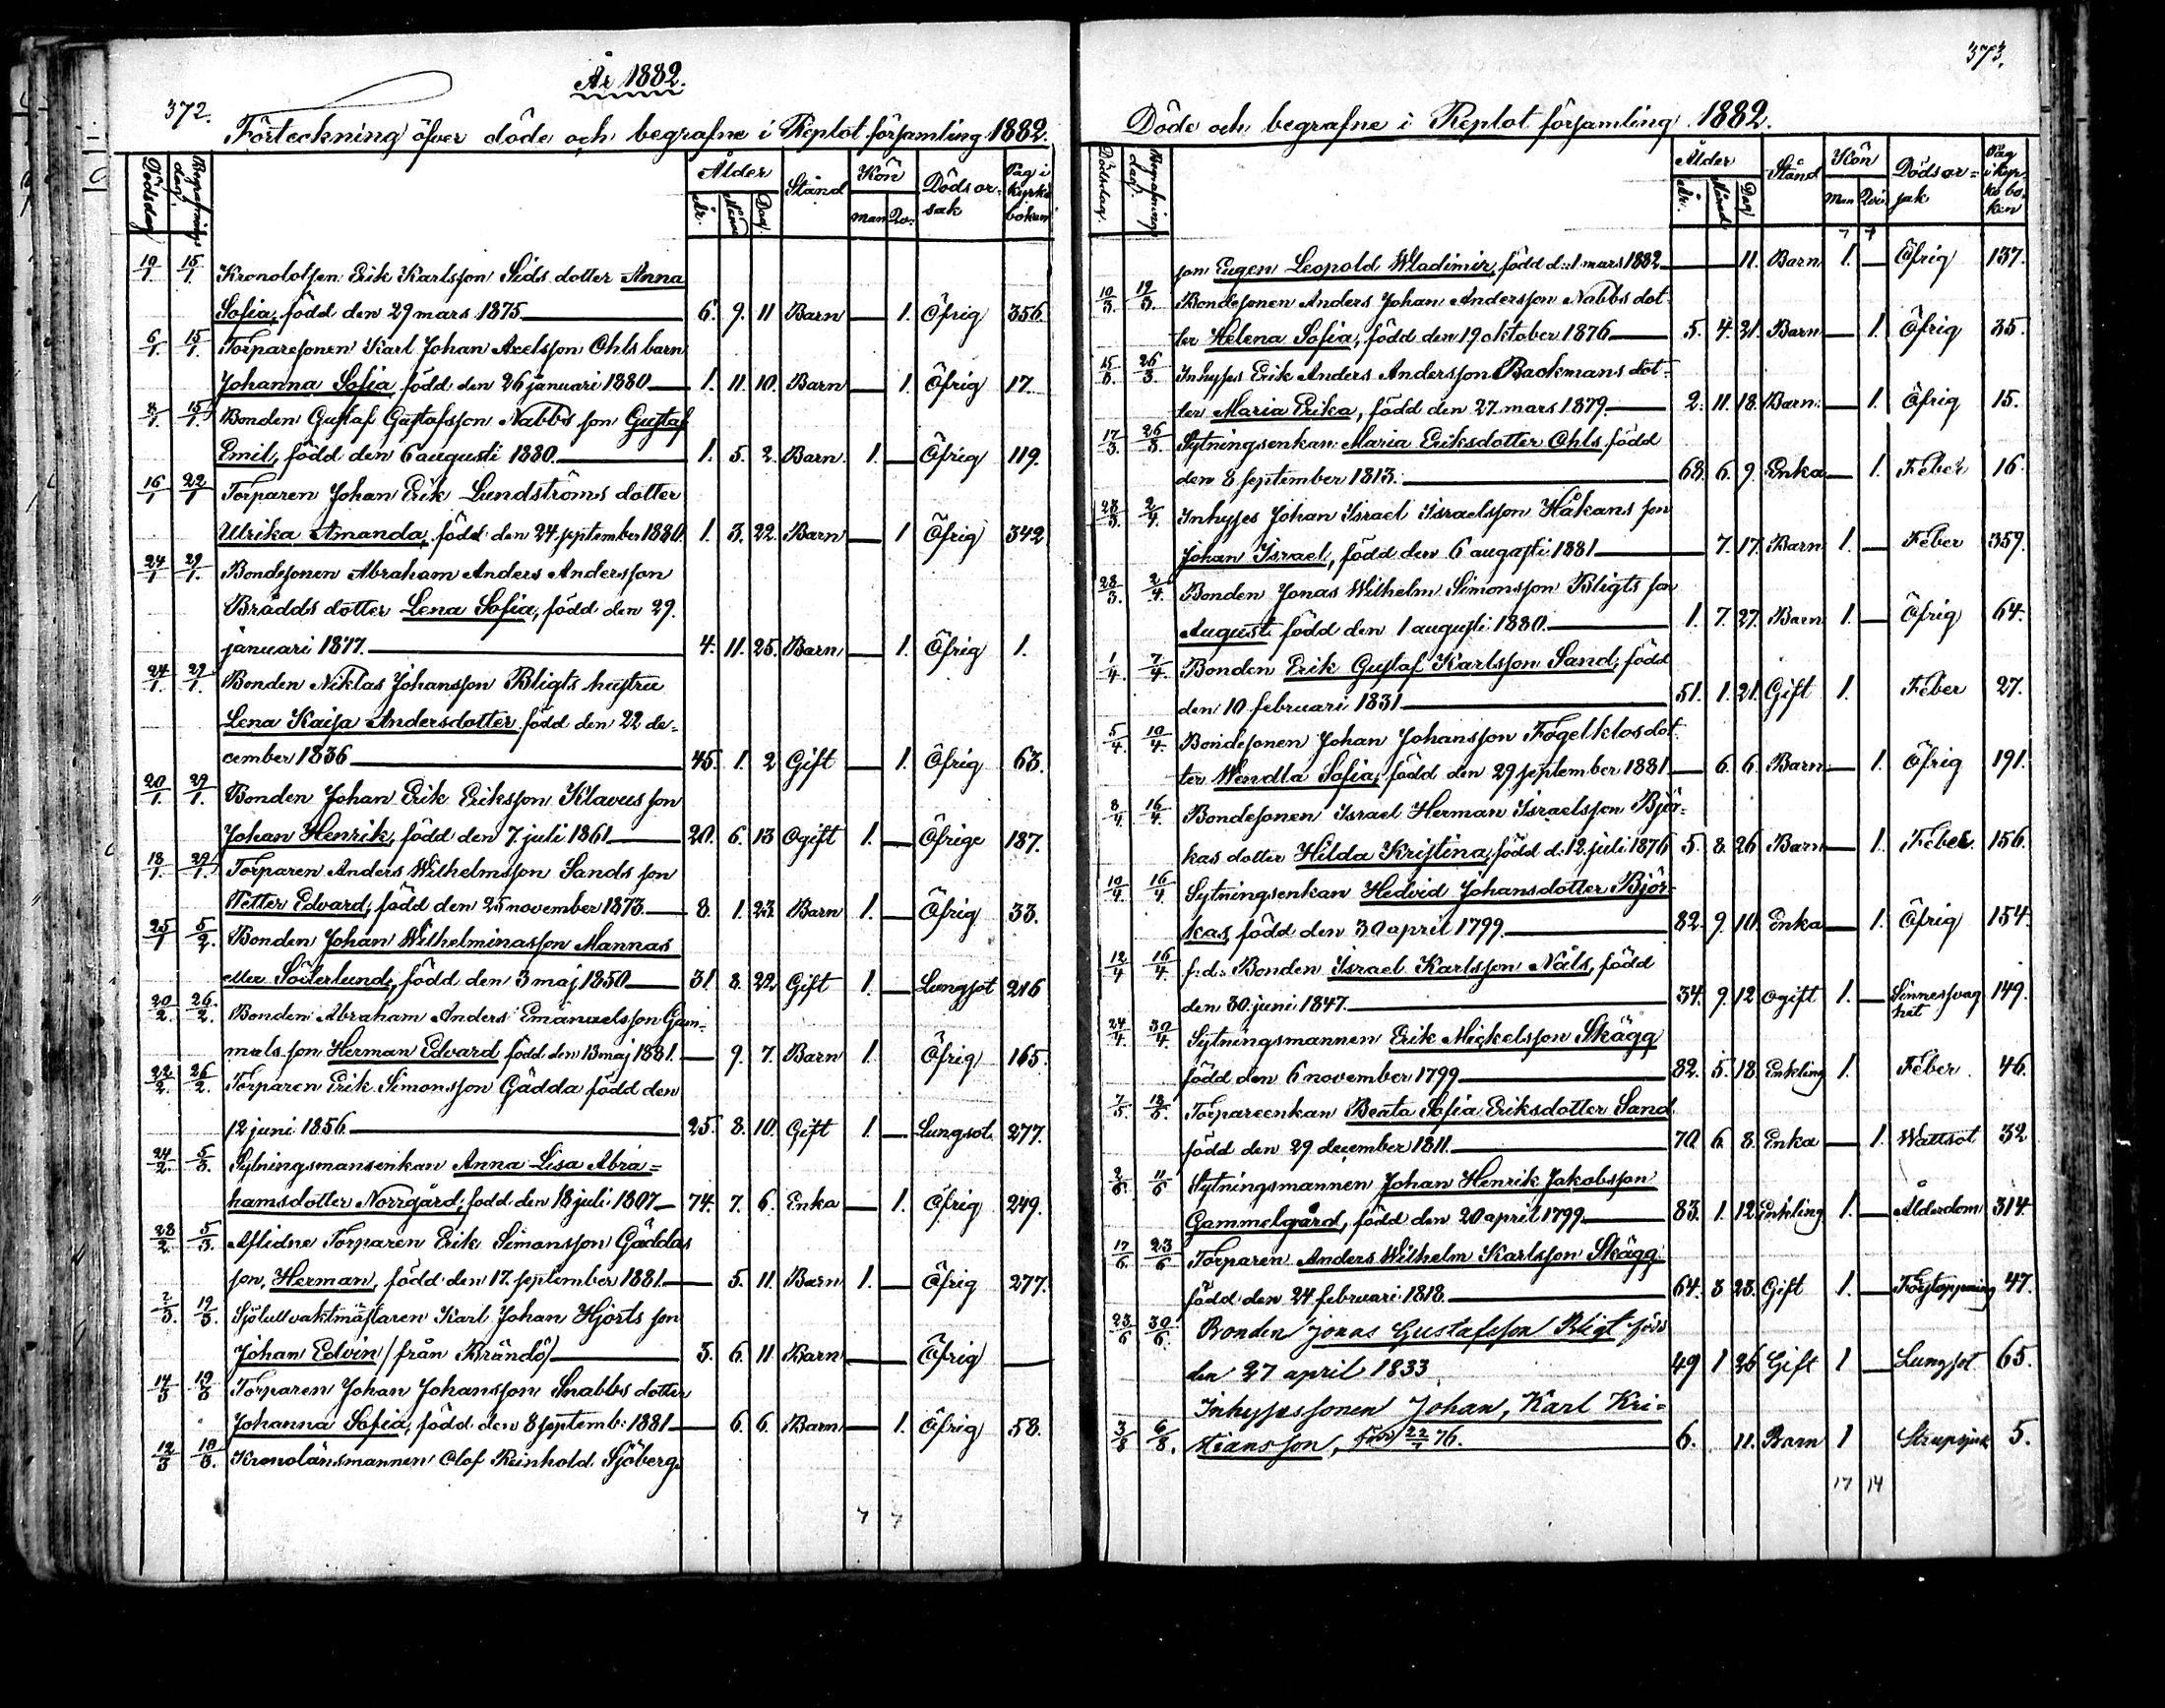 År 1882.
372.
Förteckning öfver döde och begrafne i Replot församling 1882.
Dödsdag Begrafnings dag. Ålder År. Månad Dag. Stånd Kön man Qv. Dödsor- sak Pag i Kyrko boken
10/1 15/1 Kronolotsen Erik Karlsson Sids dotter Anna
Sofia, född den 29 mars 1875 6. 9. 11 Barn 1. Öfrig 356.
6/1. 15/1. Torparesonen Karl Johan Axelsson Ohls barn
Johanna Sofia född den 26 januari 1880 1. 11. 10. Barn 1. Öfrig 17.
8/1. 15/1 Bonden Gustaf Gustafsson Nabbs son Gustaf
Emil, född den 6 augusti 1880. 1. 5. 2. Barn. 1. Öfrig 119.
16/1 22/1 Torparen Johan Erik Lundströms dotter
Ulrika Amanda, född den 24 september 1880 1. 3. 22. Barn 1 Öfrig 342
24/1 29/1. Bondesonen Abraham Anders Andersson
Brädds dotter Lena Sofia, född den 29.
januari 1877. 4. 11. 25. Barn 1. Öfrig 1.
24/1. 29/1. Bonden Niklas Johansson Bligts hustru
Lena Kaisa Andersdotter född den 22 de-
cember 1836 45. 1. 2 Gift 1. Öfrig 63.
20/1. 29/1. Bonden Johan Erik Eriksson Klavus son
Johan Henrik, född den 7. juli 1861 20. 6. 13 Ogift 1. Öfrige 187.
18/1. 29/1. Torparen Anders Wilhelmsson Sands son
Petter Edvard, född den 25 november 1873. 8. 1. 23. Barn 1. Öfrig 33.
25/1 5/2. Bonden Johan Wilhelminasson Mannas
eller Söderlund, född den 3 maj 1850 31 8. 22 Gift 1. Lungsot 216
20/2. 26/2. Bonden Abraham Anders Emanuelsson Gam-
mals son Herman Edvard född den 13 maj 1881. 9. 7. Barn 1. Öfrig 165.
22/2. 26/2. Torparen Erik Simonsson Gädda född den
12 juni 1856. 25. 8. 10. Gift 1. Lungsot 277.
24/2. 5/3. Sytningsmansenkan Anna Lisa Abra=
hamsdotter Norrgård, född den 18 juli 1807 74. 7. 6. Enka 1. Öfrig 249.
28/2. 5/3. Aflidne Torparen Erik Simonsson Gäddas
son, Herman, född den 17. september 1881. 5. 11. Barn 1. Öfrig 277.
2/3. 12/3. Sjötullvaktmästaren Karl Johan Hjorts son
Johan Edvin (från Brändö) 3. 6. 11. Barn Öfrig
14/3 19/3 Torparen Johan Johansson Snabbs dotter
Johanna Sofia, född den 8 septemb: 1881 6 6. Barn 1. Öfrig 58.
12/3 19/3. Kronolänsmannen Olof Reinhold Sjöbergs
7 7
373.
Döde och begrafne i Replot församling 1882.
Dödsdag. Begrafnings dag. Ålder År. Månad Dag Stånd Kön Man Qvin Dödsor= sak Pag i Kyr- ko bo- ken
7 7
son Eugen Leopold Wladimir, född d. 1 mars 1882 11. Barn 1. Öfrig 137.
10/3. 19/3. Bondesonen Anders Johan Andersson Nabbs dot-
ter Helena Sofia, född den 19 oktober 1876 5. 4. 21. Barn 1. Öfrig 35.
15/3. 26/3 Inhyses Erik Anders Andersson Backmans dot-
ter Maria Erika, född den 27. mars 1879. 2. 11. 18. Barn. 1. Öfrig 15.
17/3 26/3 Sytningsenkan Maria Eriksdotter Ohls född
den 8 september 1813. 68. 6. 9. Enka 1. Feber 16.
23/3 2/4. Inhyses Johan Israel Israelsson Håkans son
Johan Israel, född den 6 augusti 1881 7. 17. Barn 1. Feber 359.
28/3. 2/4. Bonden Jonas Wilhelm Simonsson Bligts son
August född den 1 augusti 1880. 1. 7. 27. Barn 1. Öfrig 64.
1/4. 7/4. Bonden Erik Gustaf Karlsson Sand, född
den 10 februari 1831 51. 1. 21. Gift 1. Feber 27.
5/4. 10/4. Bondesonen Johan Johansson Fogelklos dot-
ter Wendla Sofia, född den 29 september 1881 6. 6. Barn 1. Öfrig 191.
8/4. 16/4. Bondesonen Israel Herman Israelsson Björ-
kas dotter Hilda Kristina, född d. 12. juli 1876 5. 8. 26 Barn 1. Feber. 156.
10/4 16/4 Sytningsenkan Hedvid Johansdotter Björ-
kas, född den 30 april 1799 82. 9. 10. Enka 1. Öfrig 154.
12/4 16/4 f.d. Bonden Israel Karlsson Nåls, född
den 30. juni 1847. 34. 9. 12 ogift 1. Sinnessvag het 149.
24/4. 30/4. Sytningsmannen Erik Mickelsson Skägg
född den 6 november 1799 82. 5. 18. Enkling 1. Feber. 46.
7/5 18/5. Torpareenkan Beata Sofia Eriksdotter Sand
född den 29 december 1811. 70. 6. 8. Enka 1. Wattsot 32
2/6. 11/6 Sytningsmannen Johan Henrik Jakobsson
Gammelgård, född den 20 april 1799 83. 1. 12. Enkling 1. Ålderdom 314
17/6. 23/6 Torparen Anders Wilhelm Karlsson Skägg
född den 24 februari 1818. 64. 3 23. Gift 1. Förstoppning 47.
23/6 30/6. Bonden Jonas Gustafsson Bligt född
den 27 april 1833 49 1 26 Gift 1 Lungsot 65.
Inhysessonen Johan, Karl Kri=
3/8 6/8. stiansson, född 22/7 76. 6. 11. Barn 1 Strupsjuk 5.
17 14